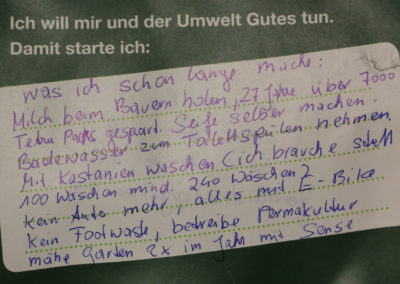 Ich will mir und der Umwelt Gutes tun.
Damit starte ich:
Was ich schon lange mache:
Milch beim Bauern holen, 27 Jahre über 7000
Tetra Packs gespart. Seife selber machen.
Badewasser zum Toilettspülen nehmen.
Mit Kastanien waschen (ich brauche statt
100 Waschen mind. 240 Waschen
Kein Auto mehr, alles mit E-Bike
Kein Foodwaste, betreibe Permakultur
mähe Garten 2x im Jahr mit Sense